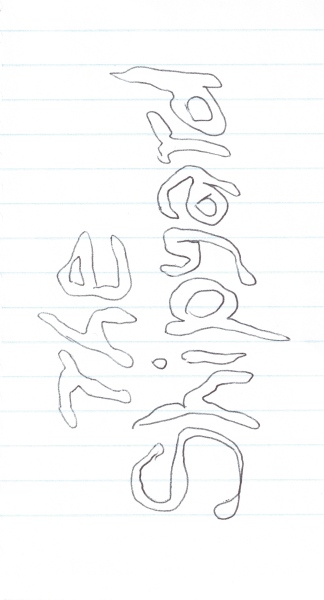 The
Shipyard